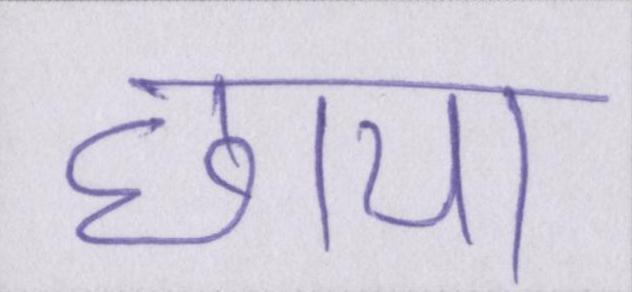 छाया